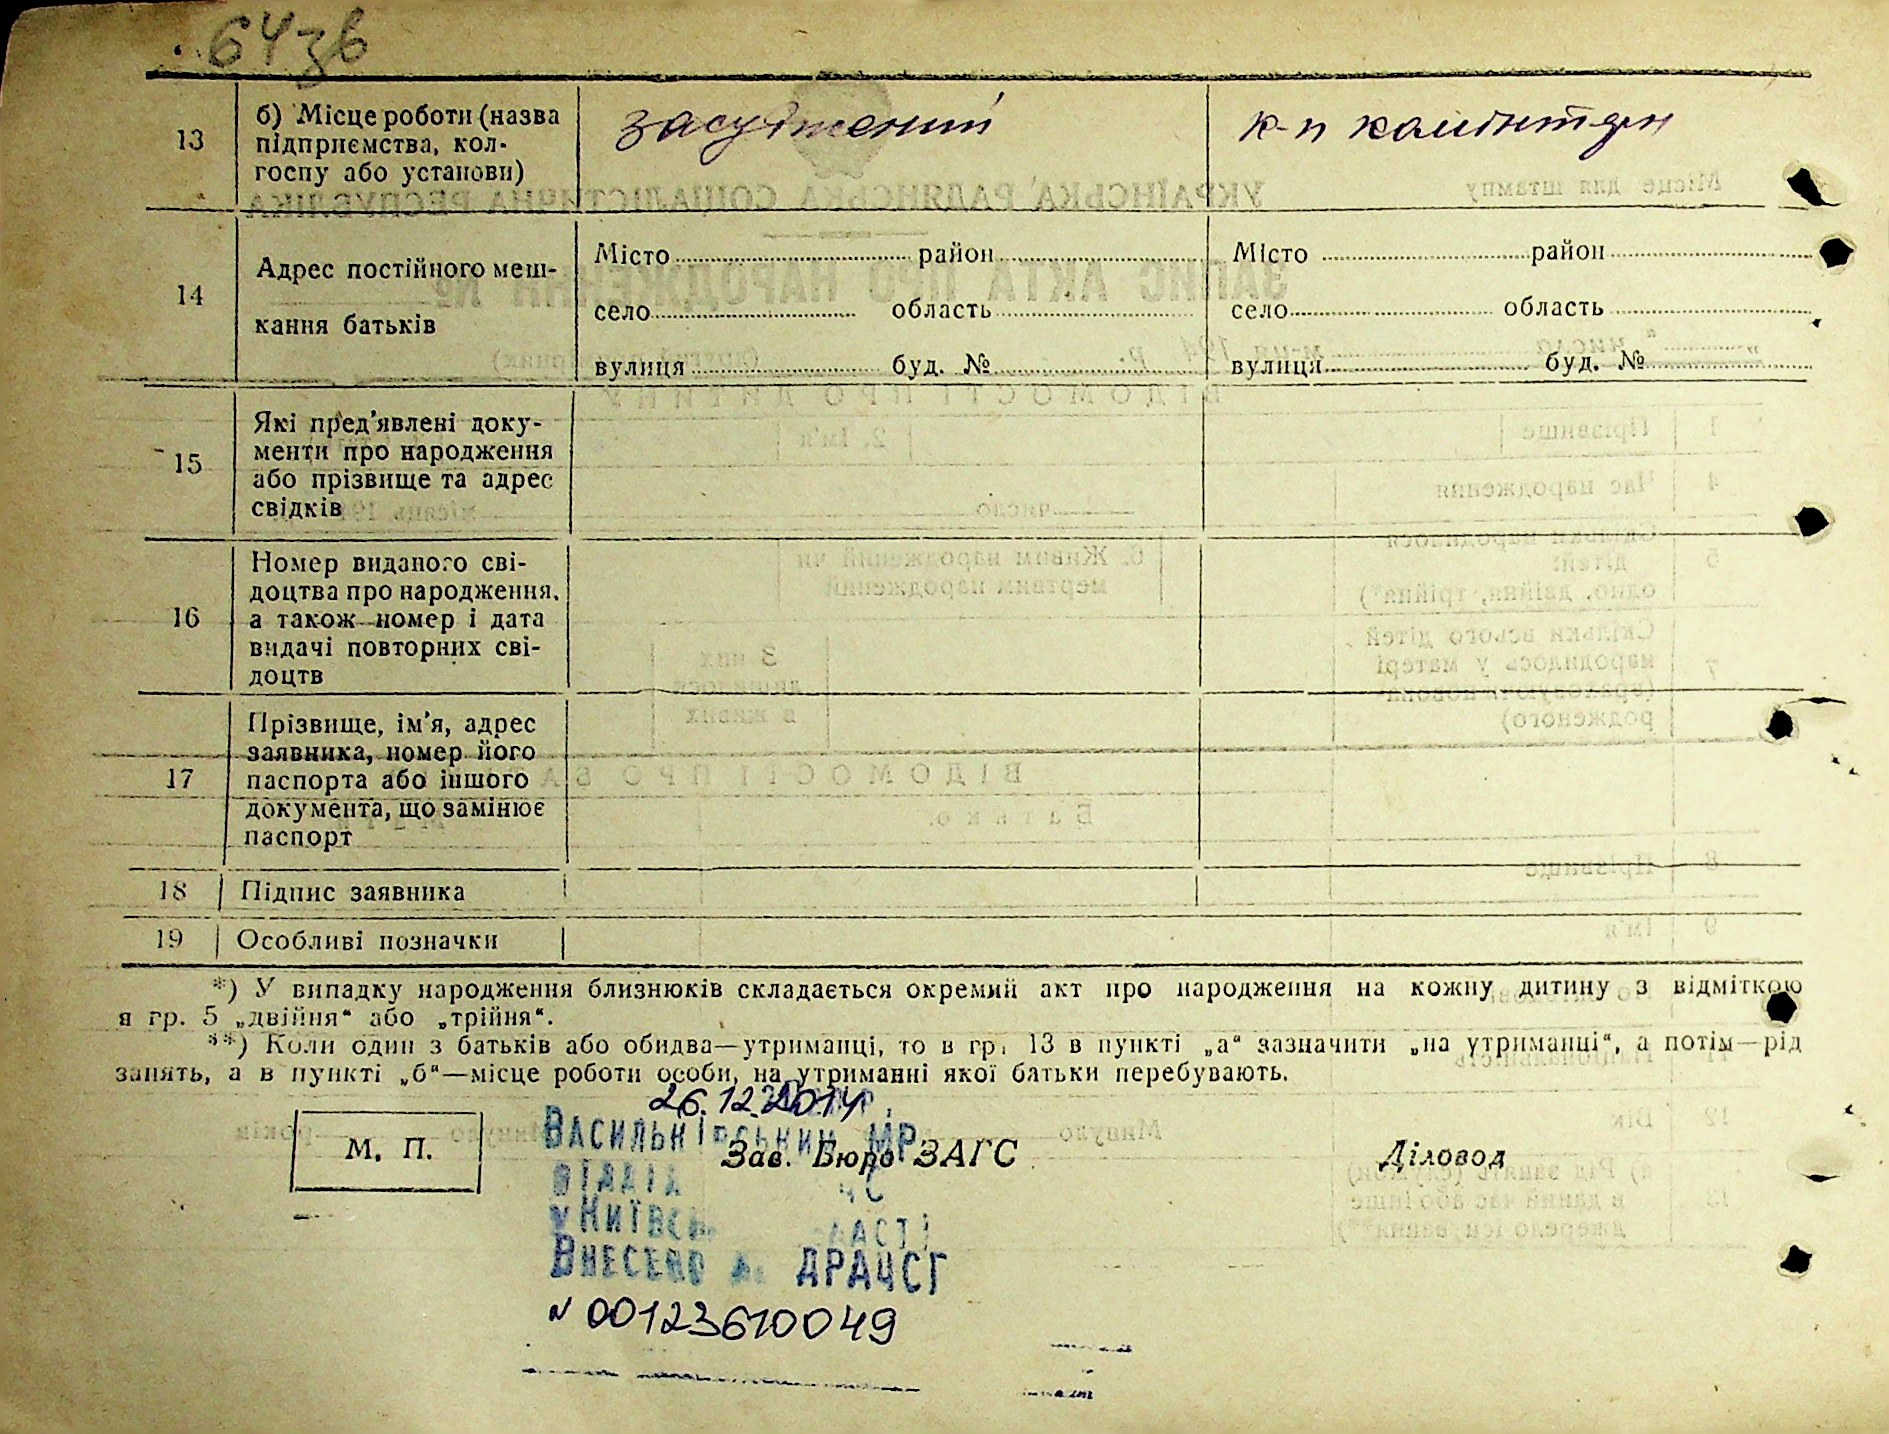 64зв
13
б) Місце роботи (назва
підприємства, кол-
госпу або установи)
засуджений
к-п комінтерн
14
Адрес постійного меш-
кання батьків
Місто район
село область
вулиця буд. №
Місто район
село область
вулиця буд. №
15
Які пред’явлені доку-
менти про народження
або прізвище та адрес
свідків
16
Номер виданого сві-
доцтва про народження,
а також номер і дата
видачі повторних сві-
доцтв
17
Прізвище, ім’я, адрес
заявника, номер його
паспорта або іншого
документа, що замінює
паспорт
18 Підпис заявника
19 Особливі позначки
*) У випадку народження близнюків складається окремий акт про народження на кожну дитину з відміткою
я гр. 5 „двійня“ або „трійня“.
**) Коли один з батьків або обидва—утриманці, то в гр. 13 в пункті „а“ зазначити „на утриманні“, а потім—рід
занять, а в пункті „б“—місце роботи особи, на утриманні якої батьки перебувають.
26.12.2014
М. П.
Васильківський МР
Зав. Бюро ЗАГС
Діловод
відділ
у Київс
Внесено ДРАЦСГ
N 00123610049